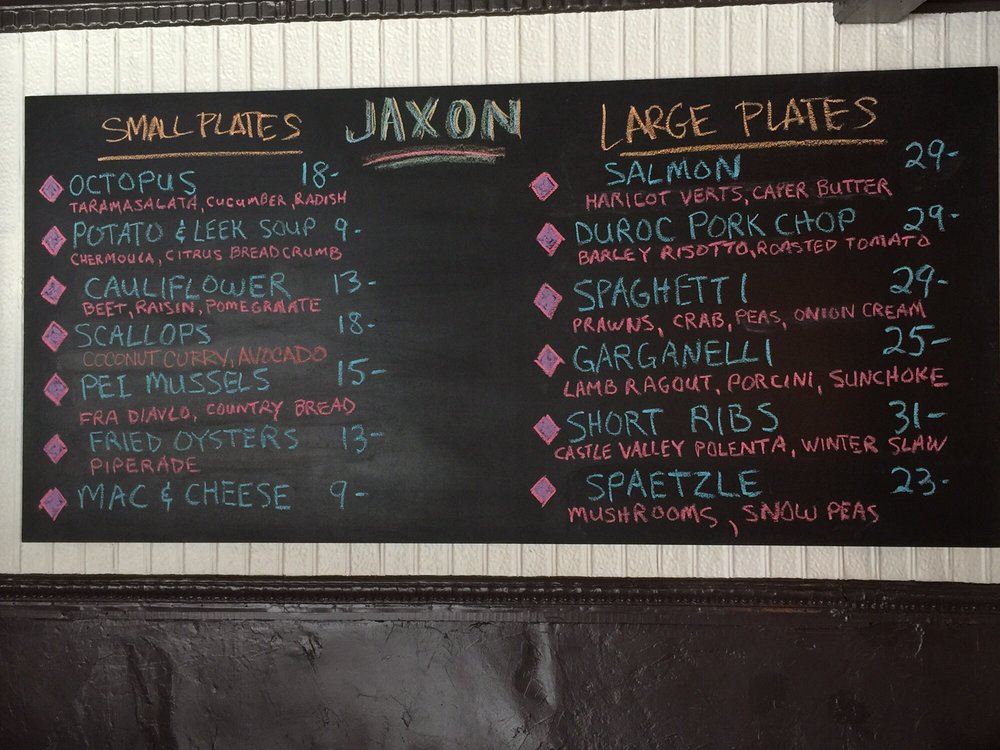 JAXON
SMALL PLATES
OCTOPUS 18-
TARAMASAGATA, CUCUMBER, RADISH
POTATO & LEEK SOUP 9-
CHERMOULA, CITRUS BREADCRUMB
CAULIFLOWER 13-
BEET, RAISIN, POMEGRNATE
SCALLOPS 18-
COCONUT CURRY, AVOCADO
PEI MUSSELS 15-
FRA DIAVLO, COUNTRY BREAD
FRIED OYSTERS 13-
PIPERADE
MAC & CHEESE 9-
LARGE PLATES
SALMON 29-
HARICOT VERTS, CAPER BUTTER
DUROC PORK CHOP 29-
BARLEY RISOTTO, ROASTED TOMATO
SPAGHETTI 29-
PRAWNS, CRAB, PEAS, ONION CREAM
GARGANELLI 25-
LAMB RAGOUT, PORCINI, SUNCHOKE
SHORT RIBS 31-
CASTLE VALLEY POLENTA, WINTER SLAW
SPAETZLE 23-
MUSHROOMS, SNOW PEAS